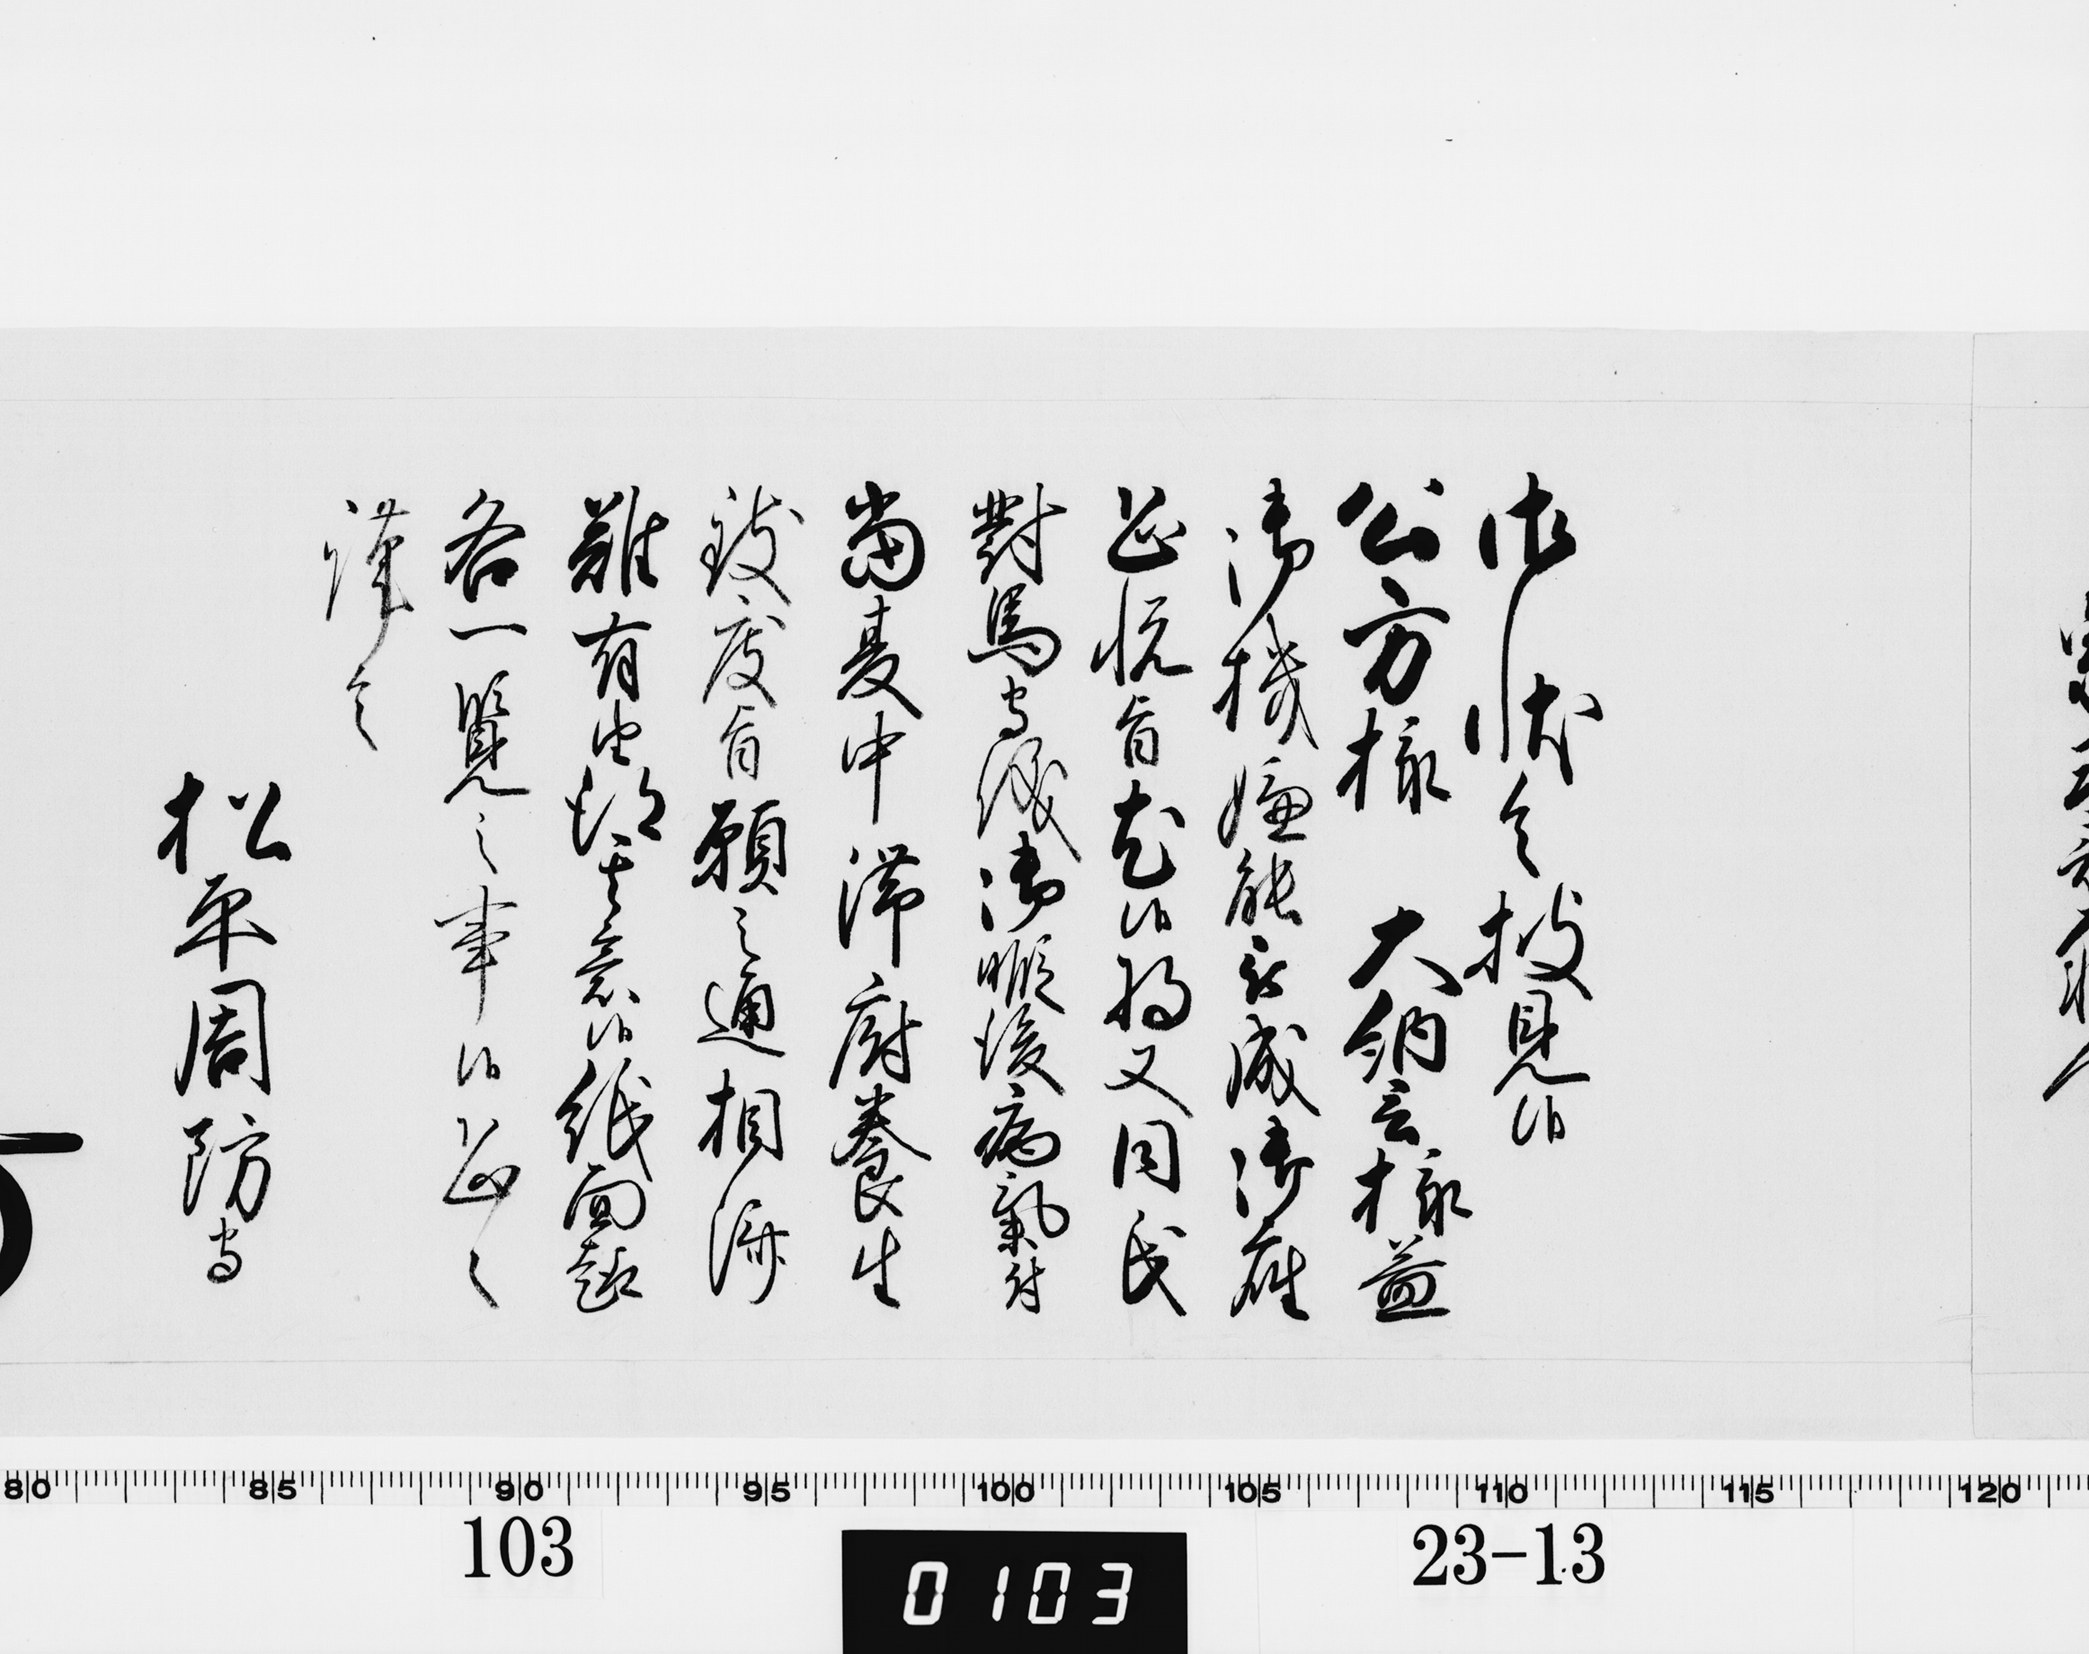 御状令披見候
公方様 大納言様益
御機嫌能被成御座
恐悦旨尤候将又同氏
對馬守儀御暇後病氣付
当夏中滞府養生
致度旨願之通相済
難有由得其意候紙面趣
各一覧之事候恐々
謹言
松平周防守
80 85 90 95 100 105 110 115 120
103
0103
23-13